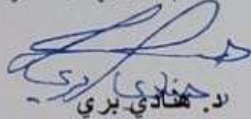 د. هنادي بري